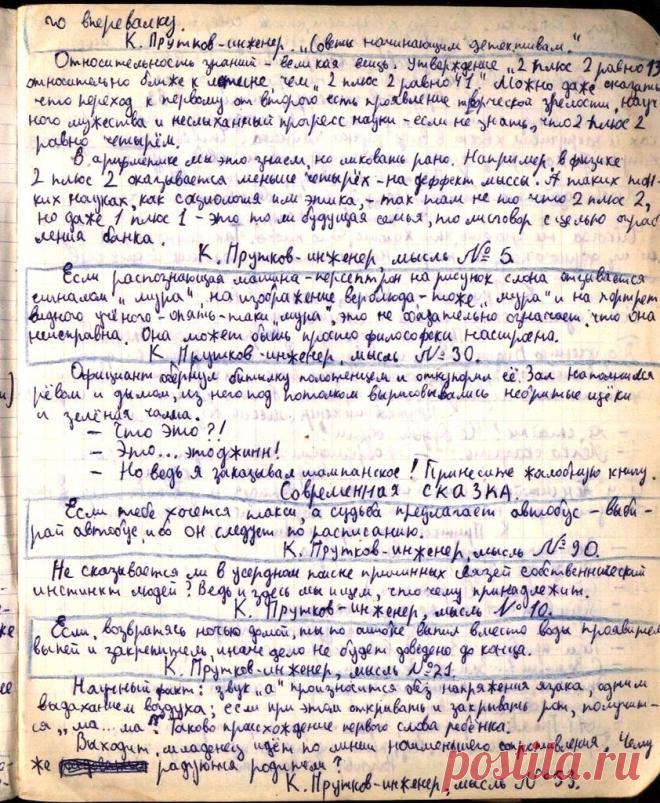 го вперевалку.
К. Прутков-инженер. „Советы начинающим детективам."
Относительность знаний – великая вещь. Утверждение „2 плюс 2 равно 13"
относительно ближе к истине, чем „2 плюс 2 равно 41". Можно даже сказать,
что переход к первому от второго есть проявление творческой зрелости, науч-
ного мужества и неслыханный прогресс науки – если не знать, что 2 плюс 2
равно четырём.
В арифметике мы это знаем, но ликовать рано. Например, в физике
2 плюс 2 оказывается меньше четырёх – на деффект массы. А таких тон-
ких науках, как социология или этика, – так там не то что 2 плюс 2,
но даже 1 плюс 1 – это то ли будущая семья, то ли сговор с целью ограб-
ления банка.
К. Прутков-инженер, мысль № 5.
Если распознающая машина – персептрон на рисунок слона отзывается
сигналом „мура", на изображение верблюда – тоже „мура" и на портрет
видного учёного – опять-таки „мура", это не обязательно означает, что она
неисправна. Она может быть просто философски настроена.
К. Прутков-инженер, мысль № 30.
Официант обернул бутылку полотенцем и откупорил её. Зал наполнился
рёвом и дымом, из него под потолком вырисовывались небритые щёки
и зелёная чалма.
– Что это?!
– Это... это джинн!
– Но ведь я заказывал шампанское! Принесите жалобную книгу.
Современная СКАЗКА.
Если тебе хочется такси, а судьба предлагает автобус – выби-
рай автобус, ибо он следует по расписанию.
К. Прутков-инженер, мысль № 90.
Не сказывается ли в усердном поиске причинных связей собственнический
инстинкт людей? Ведь и здесь мы ищем, что чему принадлежит.
К. Прутков-инженер, мысль № 10.
Если, возвратясь ночью домой, ты по ошибке выпил вместо воды проявитель,
выпей и закрепитель, иначе дело не будет доведено до конца.
К. Прутков-инженер, мысль № 21.
Научный факт: звук „а" произносится без напряжения языка, одним
выдаханием воздуха; если при этом открывать и закрывать рот, получит-
ся „ма... ма". Таково происхождение первого слова ребёнка.
Выходит, младенец идёт по линии наименьшего сопротивления. Чему
же радуются родители?
К. Прутков-инженер, мысль № 53.
postila.ru